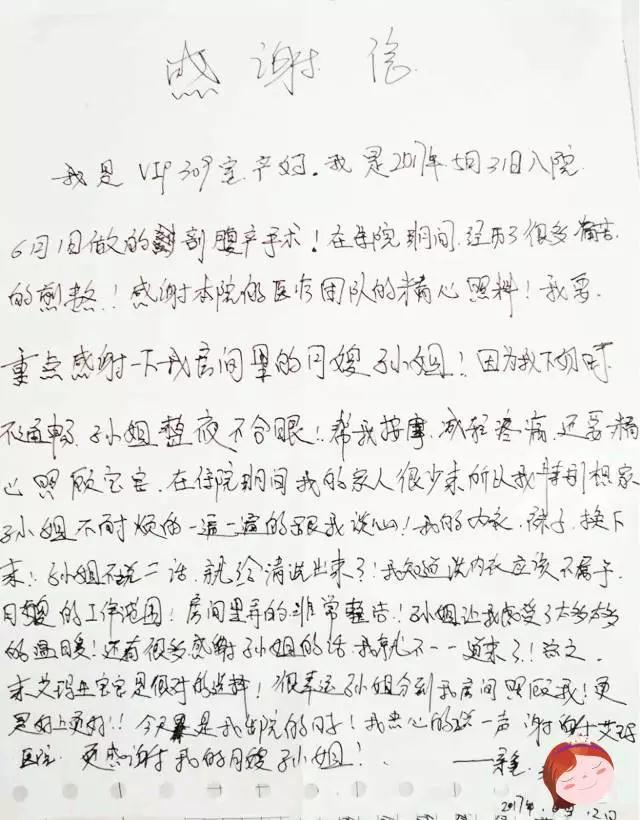 感谢信
我是VIP309室产妇.我是2017年5月31日入院
6月1日做的剖腹产手术!在住院期间.经历了很多痛苦
的煎熬!感谢本院的医疗团队的精心照料!我要.
重点感谢一下我房间里的月嫂孙姐!因为我下奶时
不通畅.孙姐整夜不合眼!帮我按摩.减轻疼痛.还要精
心照顾宝宝.在住院期间我的家人很少来所以我特别想家
孙姐不耐烦的一遍一遍的跟我谈心!我的内衣.袜子.换下
来!孙姐不说二话.就给清洗出来了!我知道洗内衣应该不属于
月嫂的工作范围!房间里弄的非常整洁!孙姐让我感受了太多太多
的温暖!还有很多感谢孙姐的话.我就不一一道来了!总之.
来艾玛生宝宝是很对的选择!很幸运孙姐分到我房间照顾我!更
是好上更好!!今天是我出院的日子!我衷心的说一声谢谢艾玛
医院.更感谢我的月嫂孙姐!
2017年